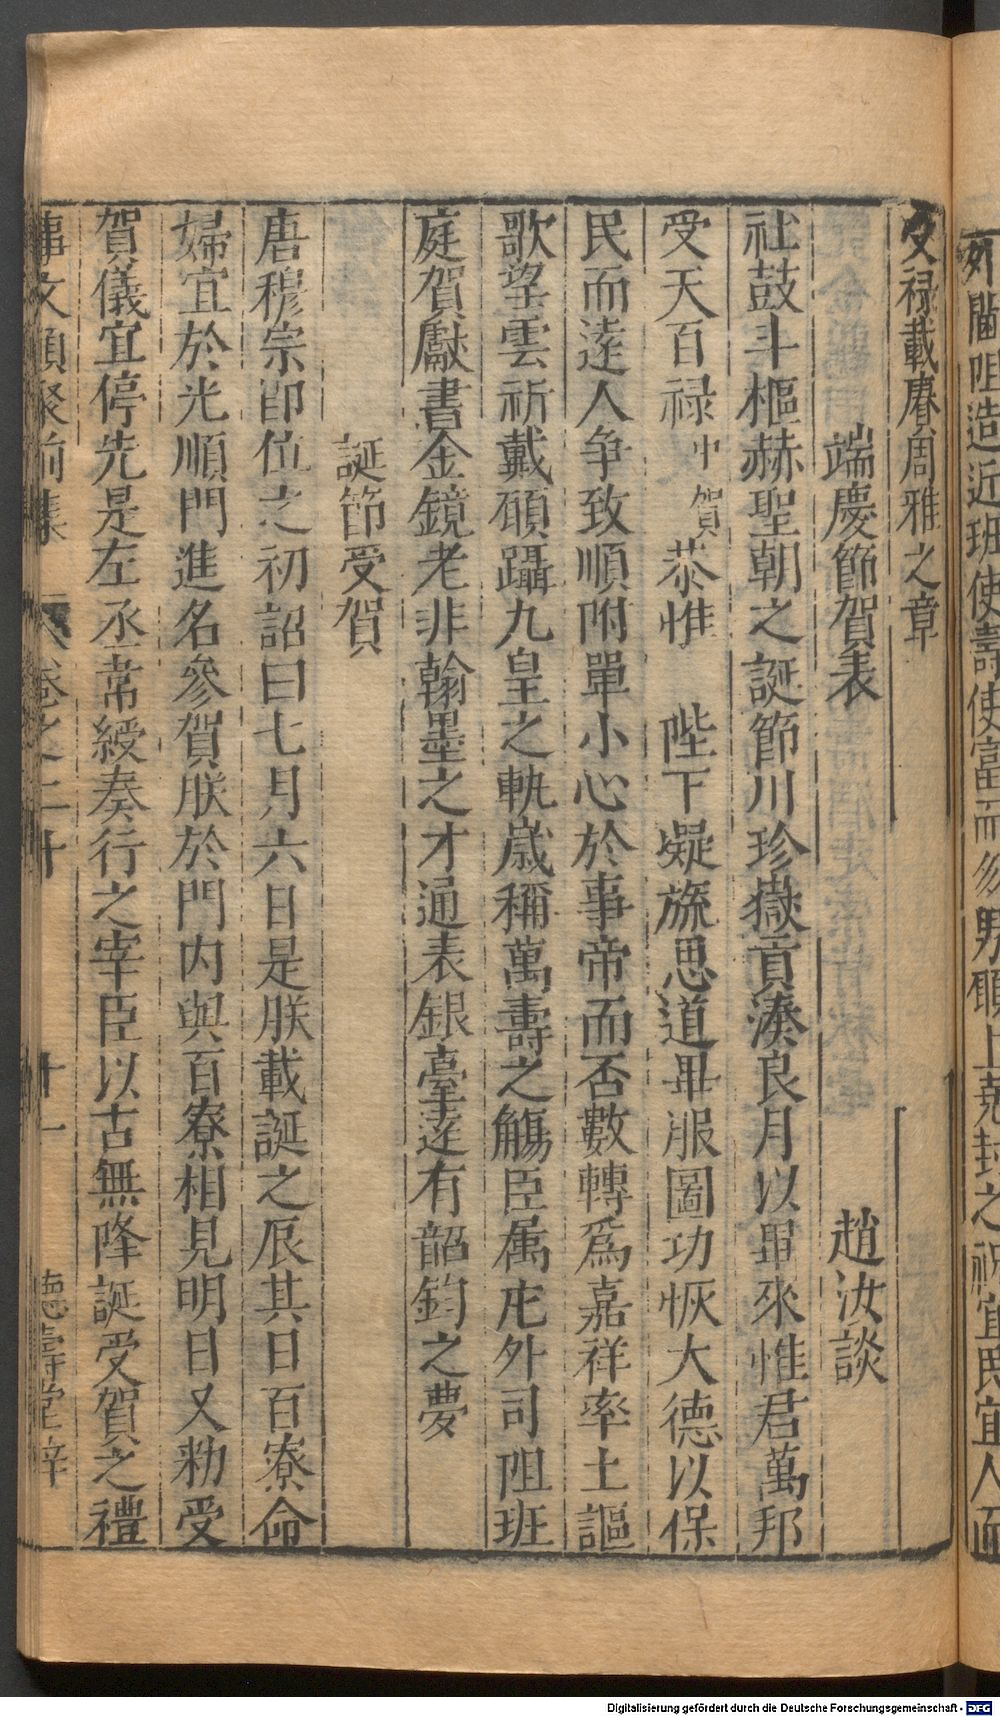 外閫阻造近班使壽使富而多男願上堯封之祝宜民宜人而
受祿載賡周雅之章
端慶節賀表　趙汝談
社鼓斗樞赫聖朝之誕節川珍嶽貢湊良月以畢來惟君萬邦
受天百祿中賀恭惟　陛下凝旒思道畢服圖功恢大德以保
民而逺人争致順附單小心於事帝而否數轉爲嘉祥率土謳
歌望雲祈戴碩躡九皇之軌歳稱萬壽之觴臣属庀外司阻班
庭賀獻書金鏡老非翰墨之才通表銀臺逺有韶鈞之夢
誕節受賀
唐穆宗即位之初詔曰七月六日是朕載誕之辰其日百寮命
婦宜於光順門進名參賀朕於門内與百寮相見明日又勑受
賀儀宜停先是左丞常綬奏行之宰臣以古無降誕受賀之禮
事文類聚前集　卷之二十　十一　德壽堂梓
Digitalisierung gefördert durch die Deutsche Forschungsgemeinschaft - DFG